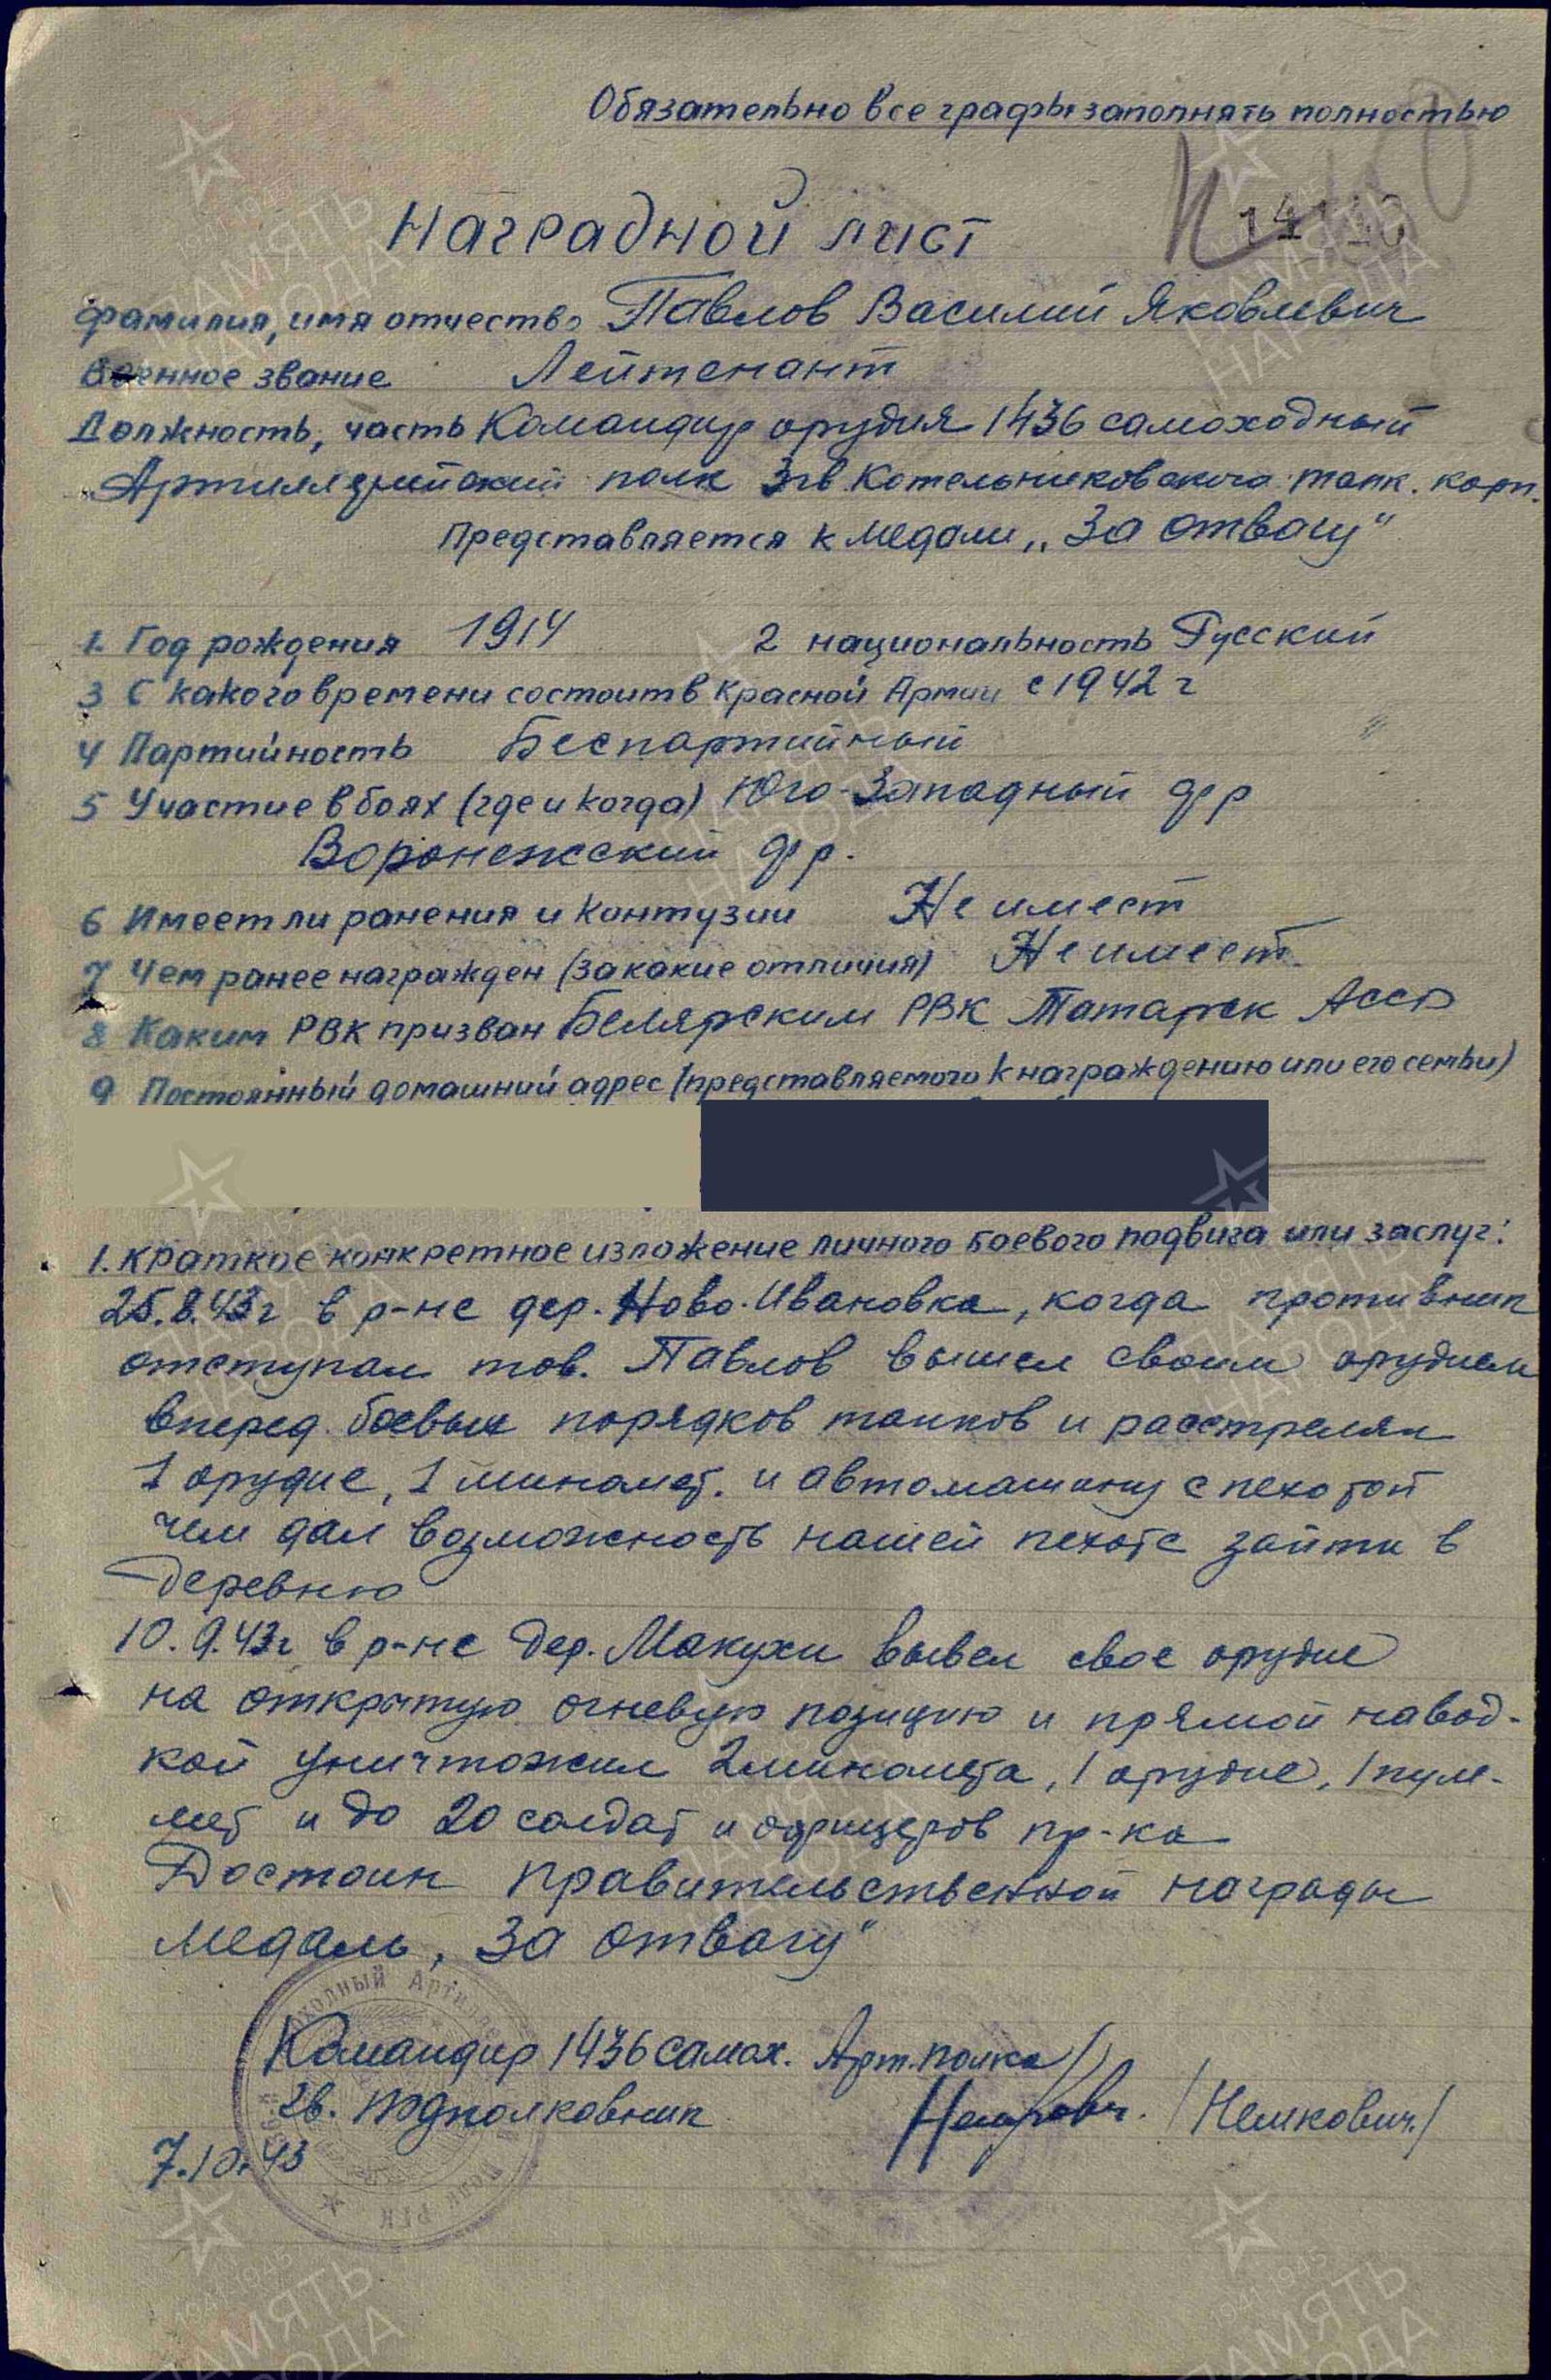 Обязательно все графы заполнять полностью
Наградной лист
фамилия, имя отчество Павлов Василий Яковлевич
Военное звание Лейтенант
Должность, часть Командир орудия 1436 самоходный
Артиллерийский полк 3 гв. Котельниковского танк. корп.
Представляется к медали „За отвагу"
1. Год рождения 1914 2 национальность Русский
3 С какого времени состоит в Красной Армии с 1942 г
4 Партийность Беспартийный
5 Участие в боях (где и когда) Юго-Западный фр
Воронежский фр.
6 Имеет ли ранения и контузии Не имеет
7 Чем ранее награжден (за какие отличия) Не имеет
8 Каким РВК призван Белярским РВК Татарск АССР
9 Постоянный домашний адрес (представляемого к награждению или его семьи)
1. краткое конкретное изложение личного боевого подвига или заслуг:
25.8.43г в р-не дер. Ново-Ивановка, когда противник
отступал тов. Павлов вышел своим орудием
вперед боевых порядков танков и расстрелял
1 орудие, 1 миномет. и автомашину с пехотой
чем дал возможность нашей пехоте зайти в
деревню
10.9.43г в р-не дер. Макухи вывел свое орудие
на открытую огневую позицию и прямой навод-
кой уничтожил 2 миномета, 1 орудие, 1 пуле-
мет и до 20 солдат и офицеров пр-ка
Достоин правительственной награды
медаль „За отвагу"
Командир 1436 самох. Арт. полка
гв. подполковник /Немкович./
7.10.43
ПАМЯТЬ
НАРОДА
1941 1945